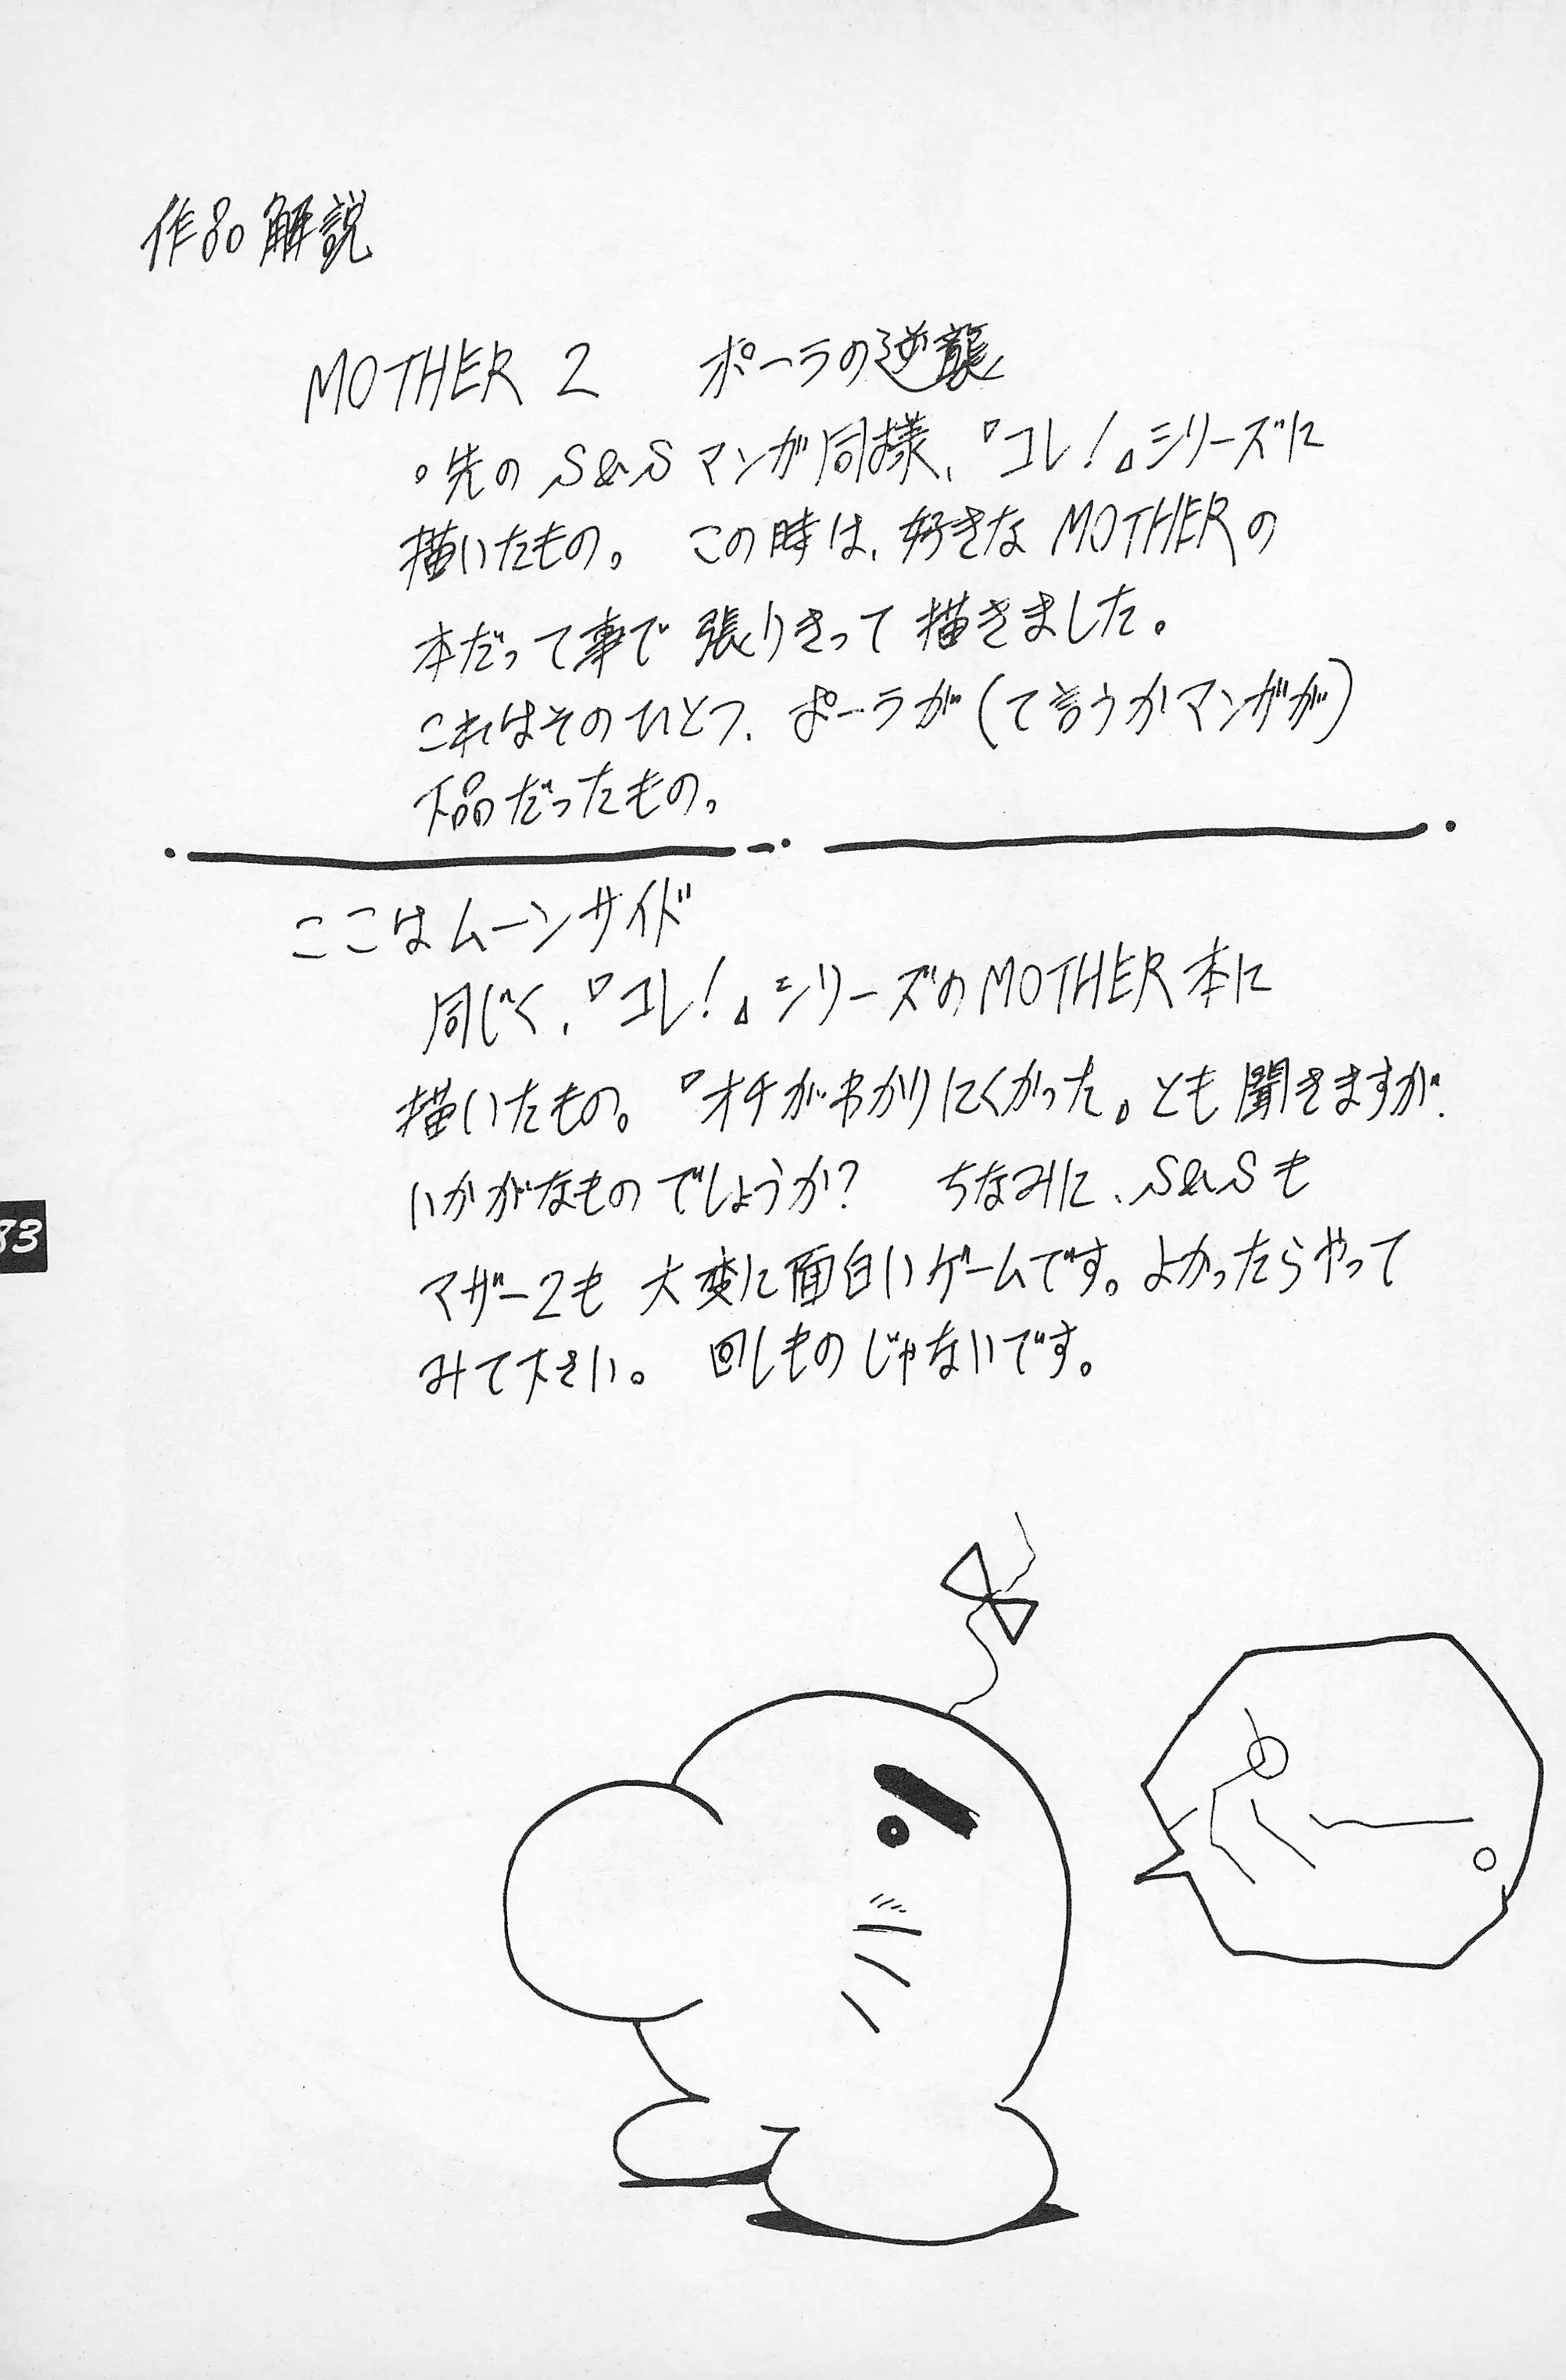 作品解説
MOTHER 2 ポーラの逆襲
。先の S&S マンガ同様、『コレ!』シリーズに
描いたもの。 この時は、好きな MOTHERの
本だって事で 張りきって 描きました。
これはそのひとつ、ポーラが(て言うかマンガが)
下品だったもの。
ここはムーンサイド
同じく、『コレ!』シリーズのMOTHER 本に
描いたもの。『オチがわかりにくかった』とも聞きますが、
いかがなものでしょうか? ちなみに、S&Sも
マザー2も 大変に面白いゲームです。よかったらやって
みて下さい。 回しものじゃないです。
83